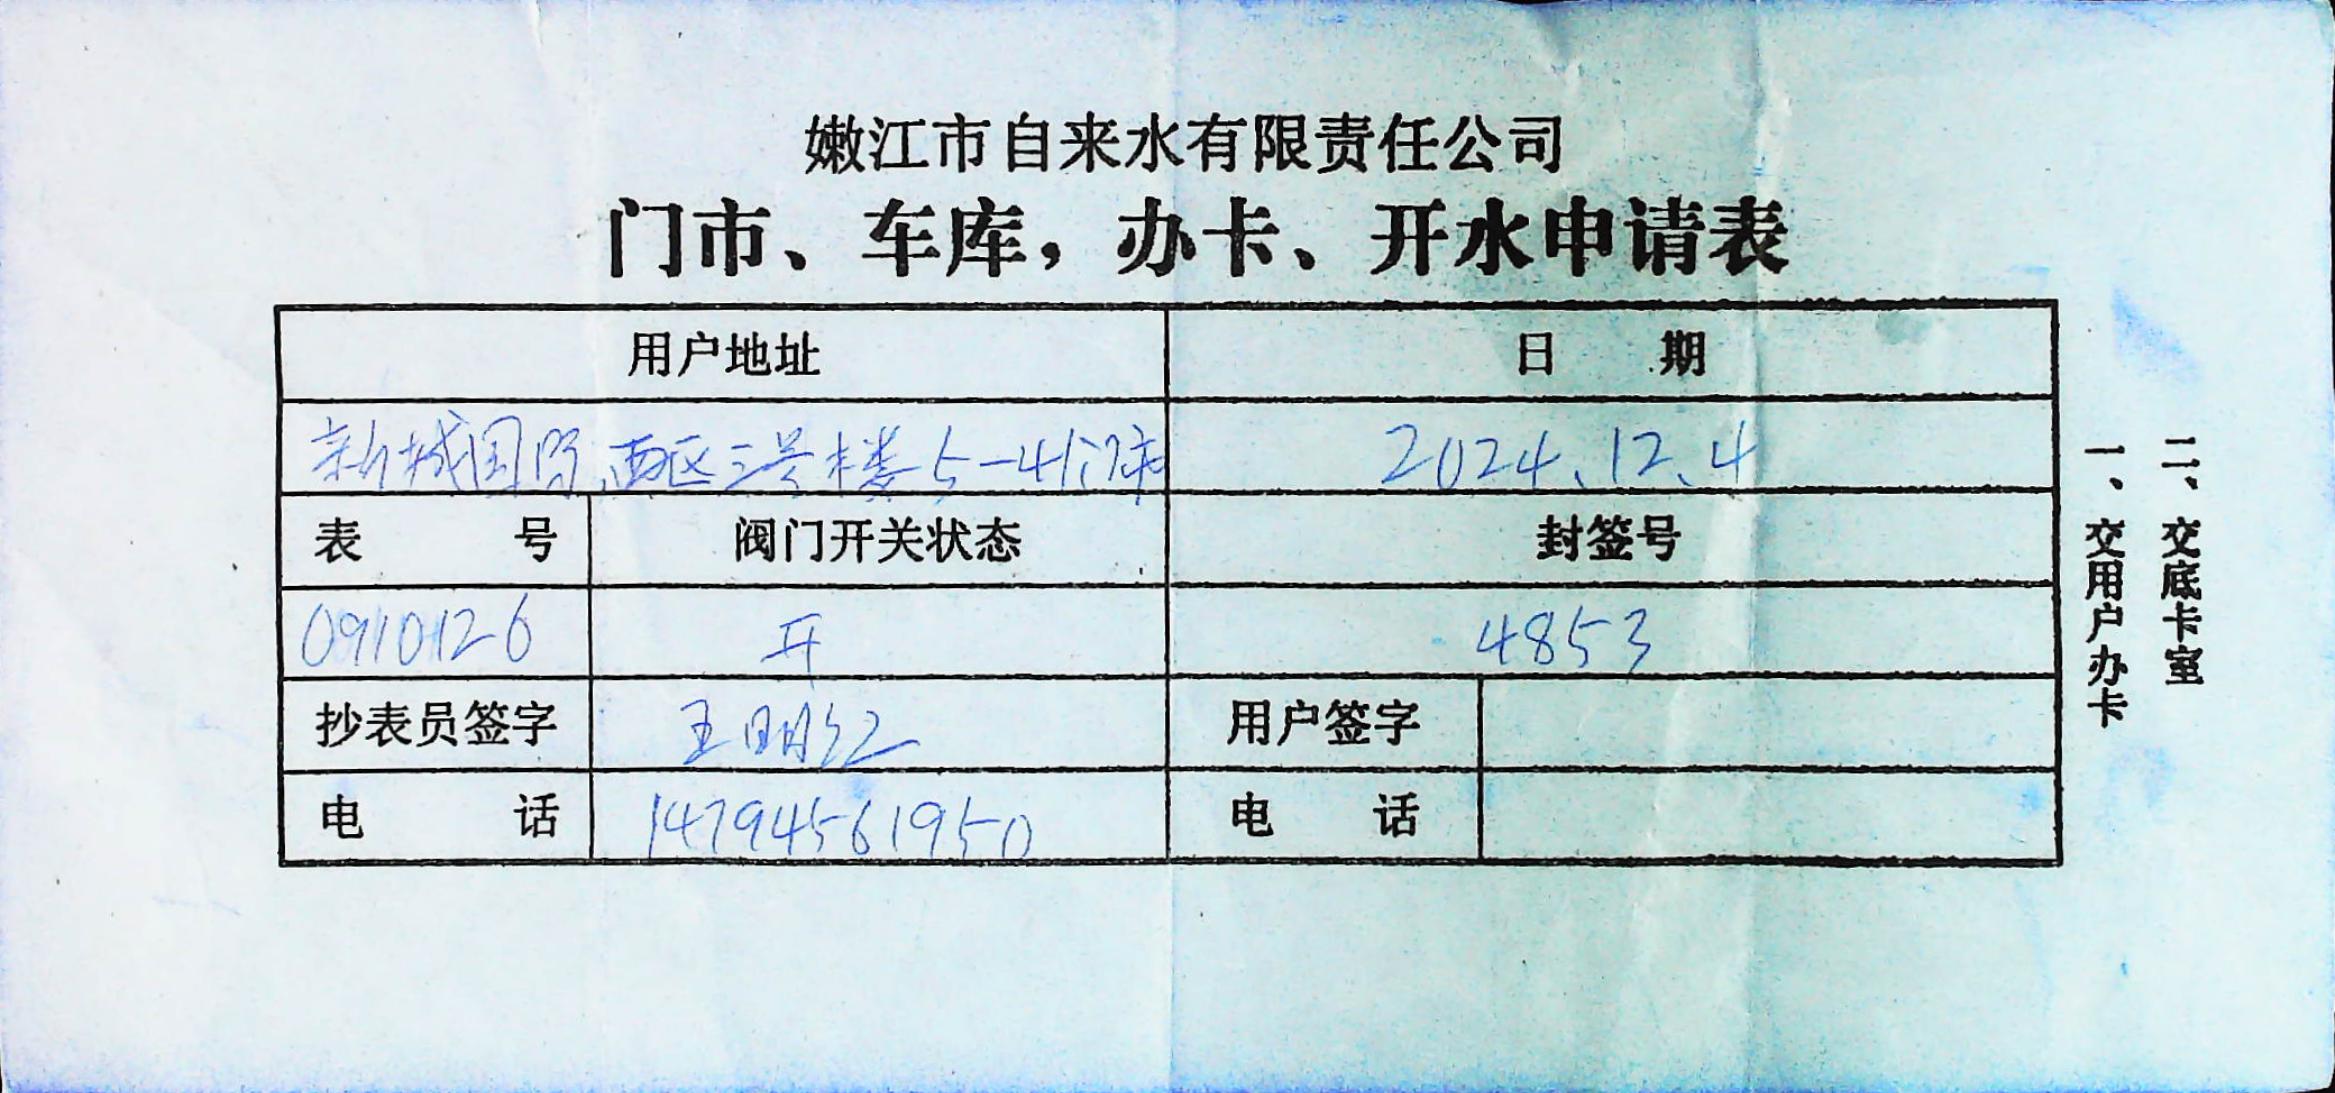 嫩江市自来水有限责任公司
门市、车库，办卡、开水申请表
用户地址 日 期
新城国际西区三号楼5-4门市 2024.12.4
表 号 阀门开关状态 封签号
0910126 开 4853
抄表员签字 王明江 用户签字
电 话 14794561950 电 话
一、交用户办卡
二、交底卡室